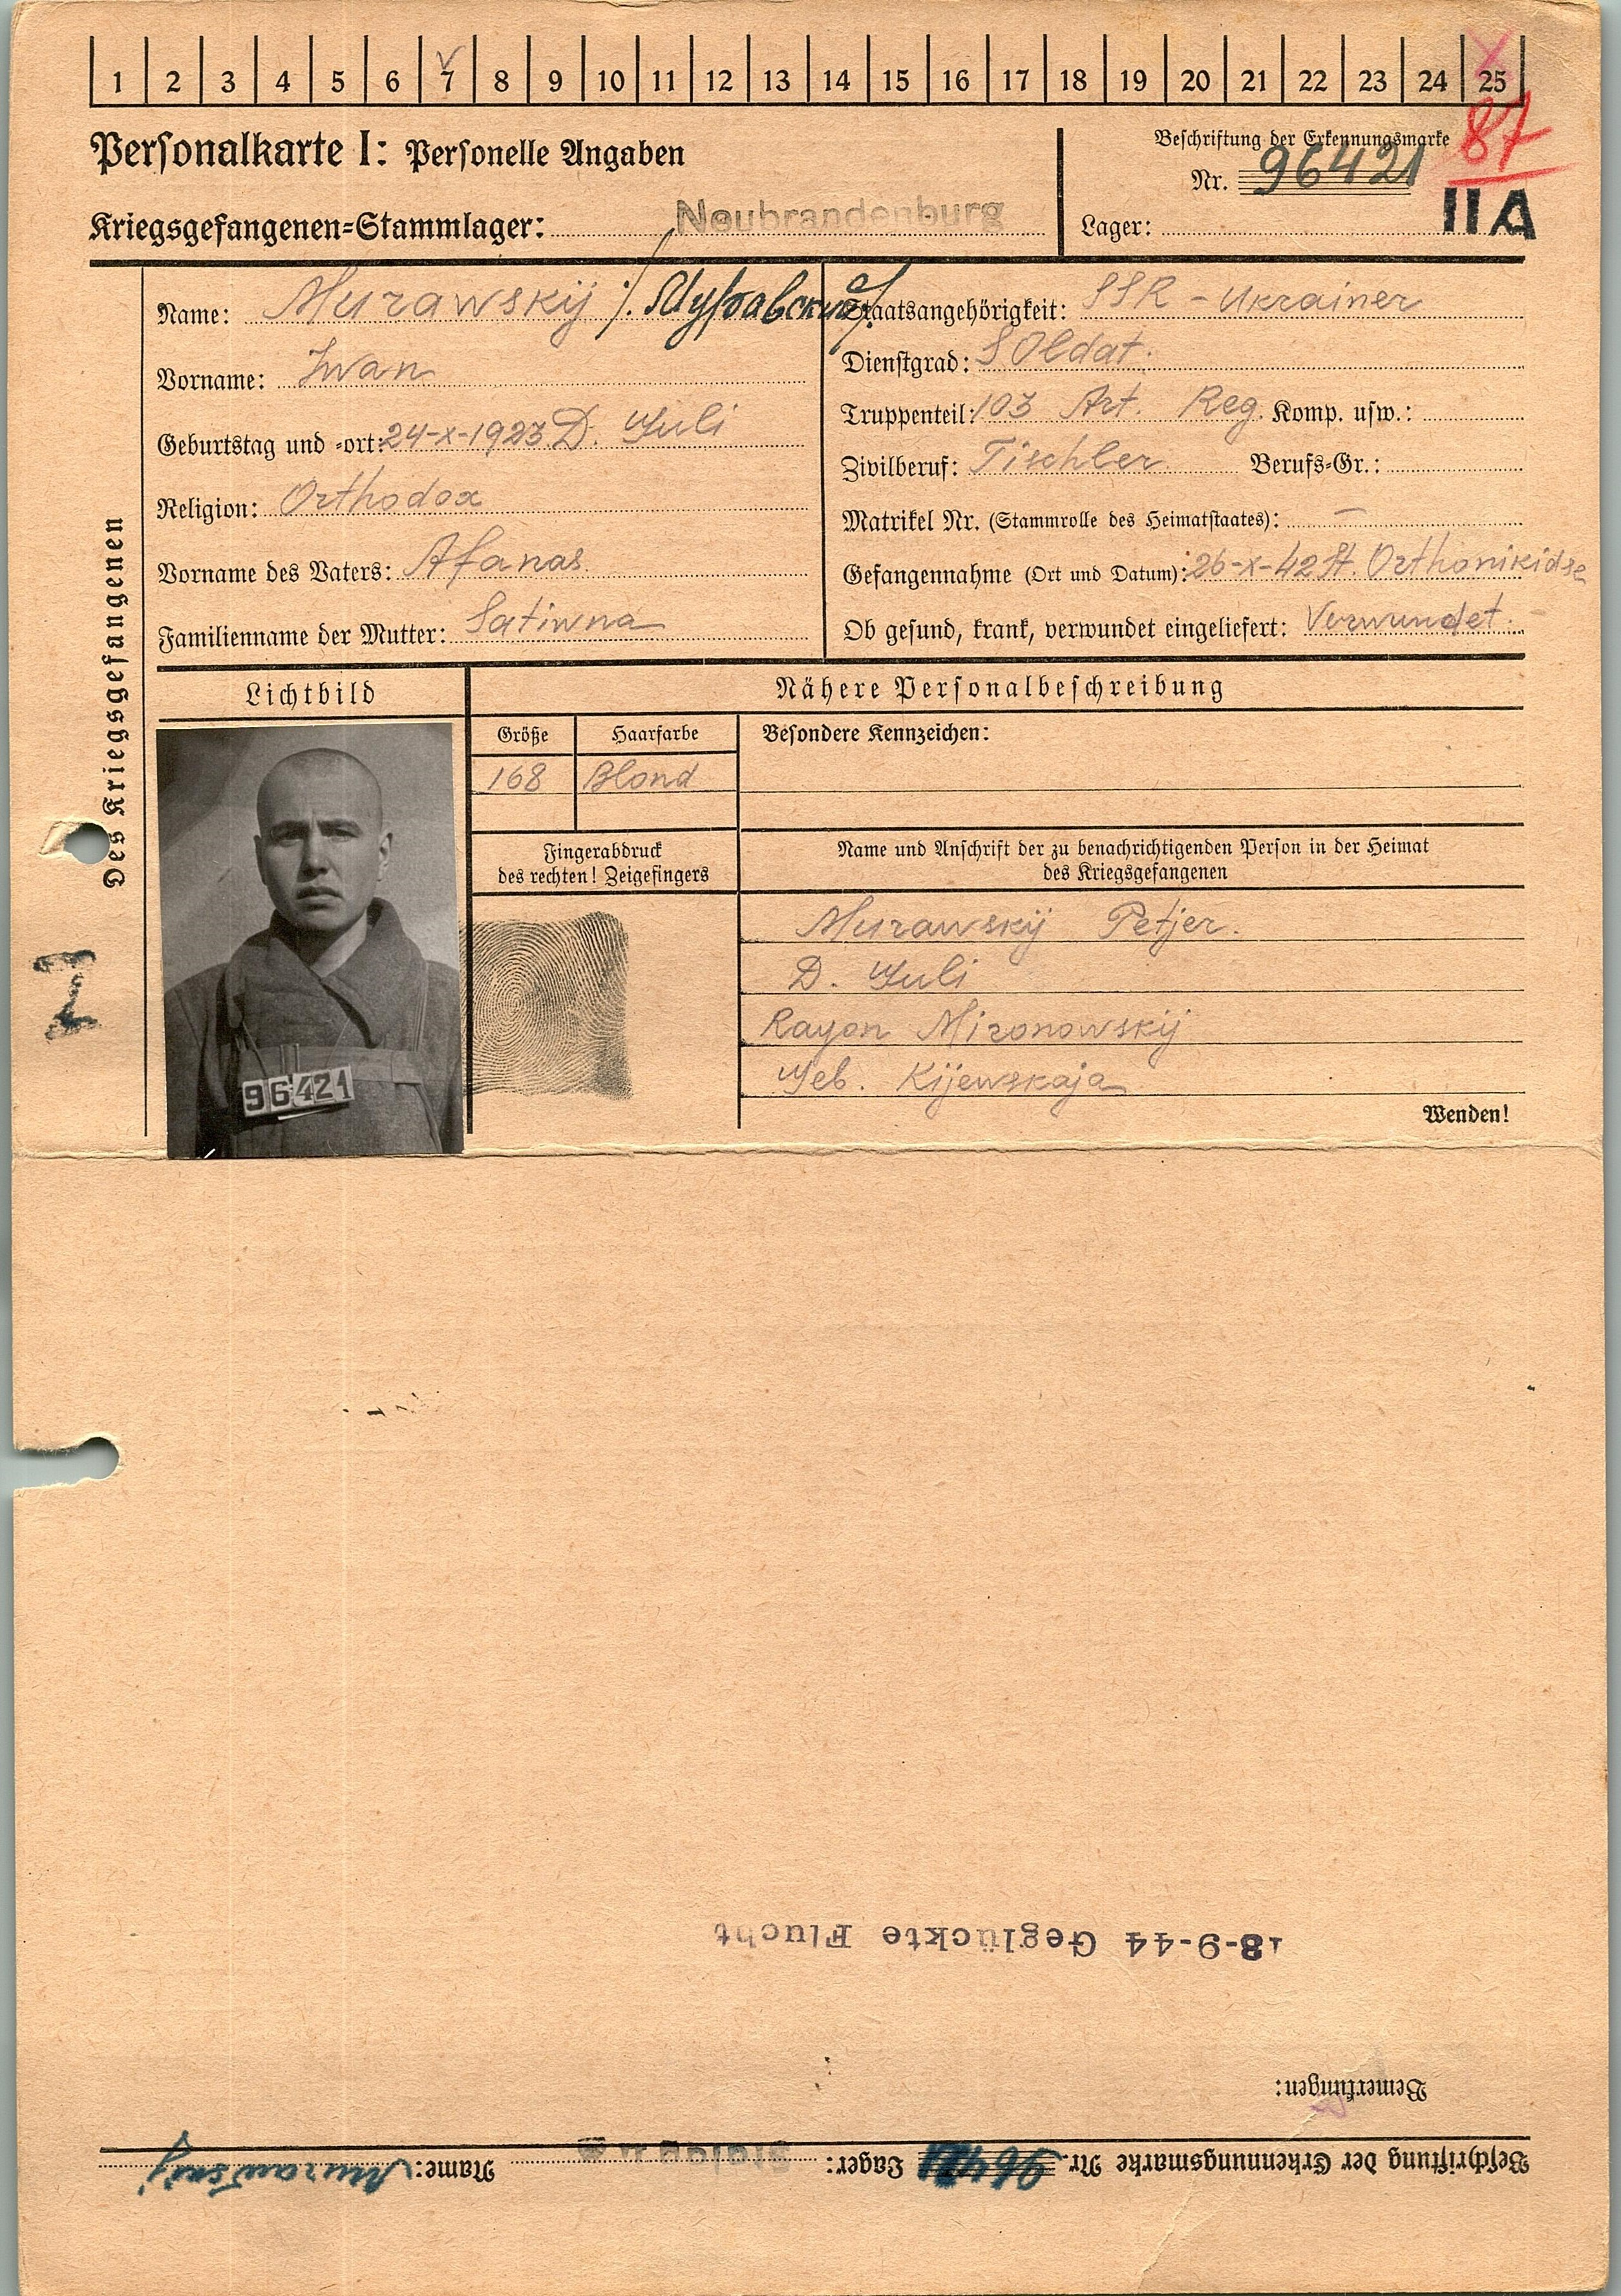 1 2 3 4 5 6 7 8 9 10 11 12 13 14 15 16 17 18 19 20 21 22 23 24 25
87
Personalkarte I: Personelle Angaben
Beschriftung der Erkennungsmarke
Nr. 96421
Kriegsgefangenen-Stammlager: Neubrandenburg
Lager: II A
Des Kriegsgefangenen
Name: Murawskij /. Муравский /.
Vorname: Iwan
Geburtstag und -ort: 24-X-1923 D. Juli
Religion: Orthodox
Vorname des Vaters: Afanas
Familienname der Mutter: Satiwna
Staatsangehörigkeit: SSR - Ukrainer
Dienstgrad: SOldat.
Truppenteil: 103 Art. Reg. Komp. usw.:
Zivilberuf: Tischler Berufs-Gr.:
Matrikel Nr. (Stammrolle des Heimatstaates): —
Gefangennahme (Ort und Datum): 26-X-42 St. Orthonikidse
Ob gesund, krank, verwundet eingeliefert: Verwundet.
Lichtbild
Nähere Personalbeschreibung
Größe Haarfarbe Besondere Kennzeichen:
168 Blond
Fingerabdruck
des rechten! Zeigefingers
Name und Anschrift der zu benachrichtigenden Person in der Heimat
des Kriegsgefangenen
Murawskij Petjer.
D. Juli
Rayon Mironowskij
Geb. Kijewskaja
96421
Wenden!
I
Beschriftung der Erkennungsmarke Nr. 96421 Lager: Stalag II Name: Murawskij
Bemerkungen:
18-9-44 Geglückte Flucht